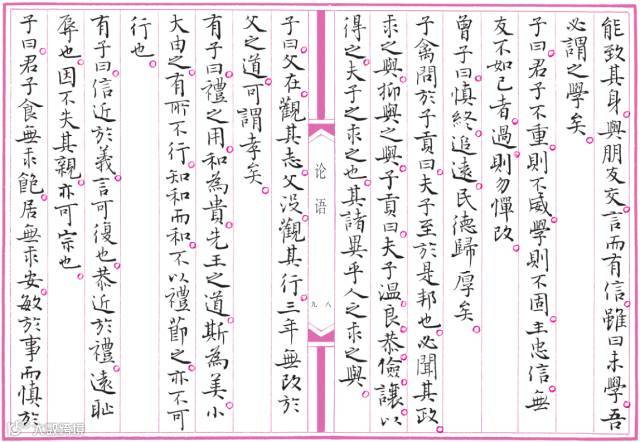 能致其身與朋友交言而有信雖曰未學吾
必謂之學矣
子曰君子不重則不威學則不固主忠信無
友不如己者過則勿憚改
曾子曰慎終追遠民德歸厚矣
子禽問於子貢曰夫子至於是邦也必聞其政
求之與抑與之與子貢曰夫子溫良恭儉讓以
得之夫子之求之也其諸異乎人之求之與
论语
八
九
子曰父在觀其志父沒觀其行三年無改於
父之道可謂孝矣
有子曰禮之用和為貴先王之道斯為美小
大由之有所不行知和而和不以禮節之亦不可
行也
有子曰信近於義言可復也恭近於禮遠恥
辱也因不失其親亦可宗也
子曰君子食無求飽居無求安敏於事而慎於